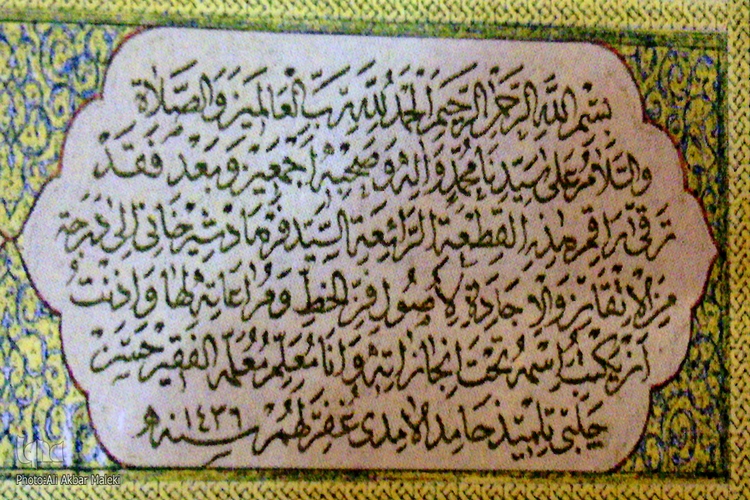 بسم الله الرحمن الرحيم الحمد لله رب العالمين والصلاة
والسلام على سيدنا محمد وآله وصحبه أجمعين وبعد فقد
ترقى راقم هذه القطعة الرائعة السيد فرهاد شيخاني إلى درجة
من الإتقان والإجادة لأصول فن الخط ومراعاته لها وأذنت
أن يكتب اسمه تحت إنجازاته وأنا معلم معلمه الفقير حسن
جلبي تلميذ حامد الآمدي غفر لهم سنه ١٤٣٦
Photo:Ali Akbar Maleki